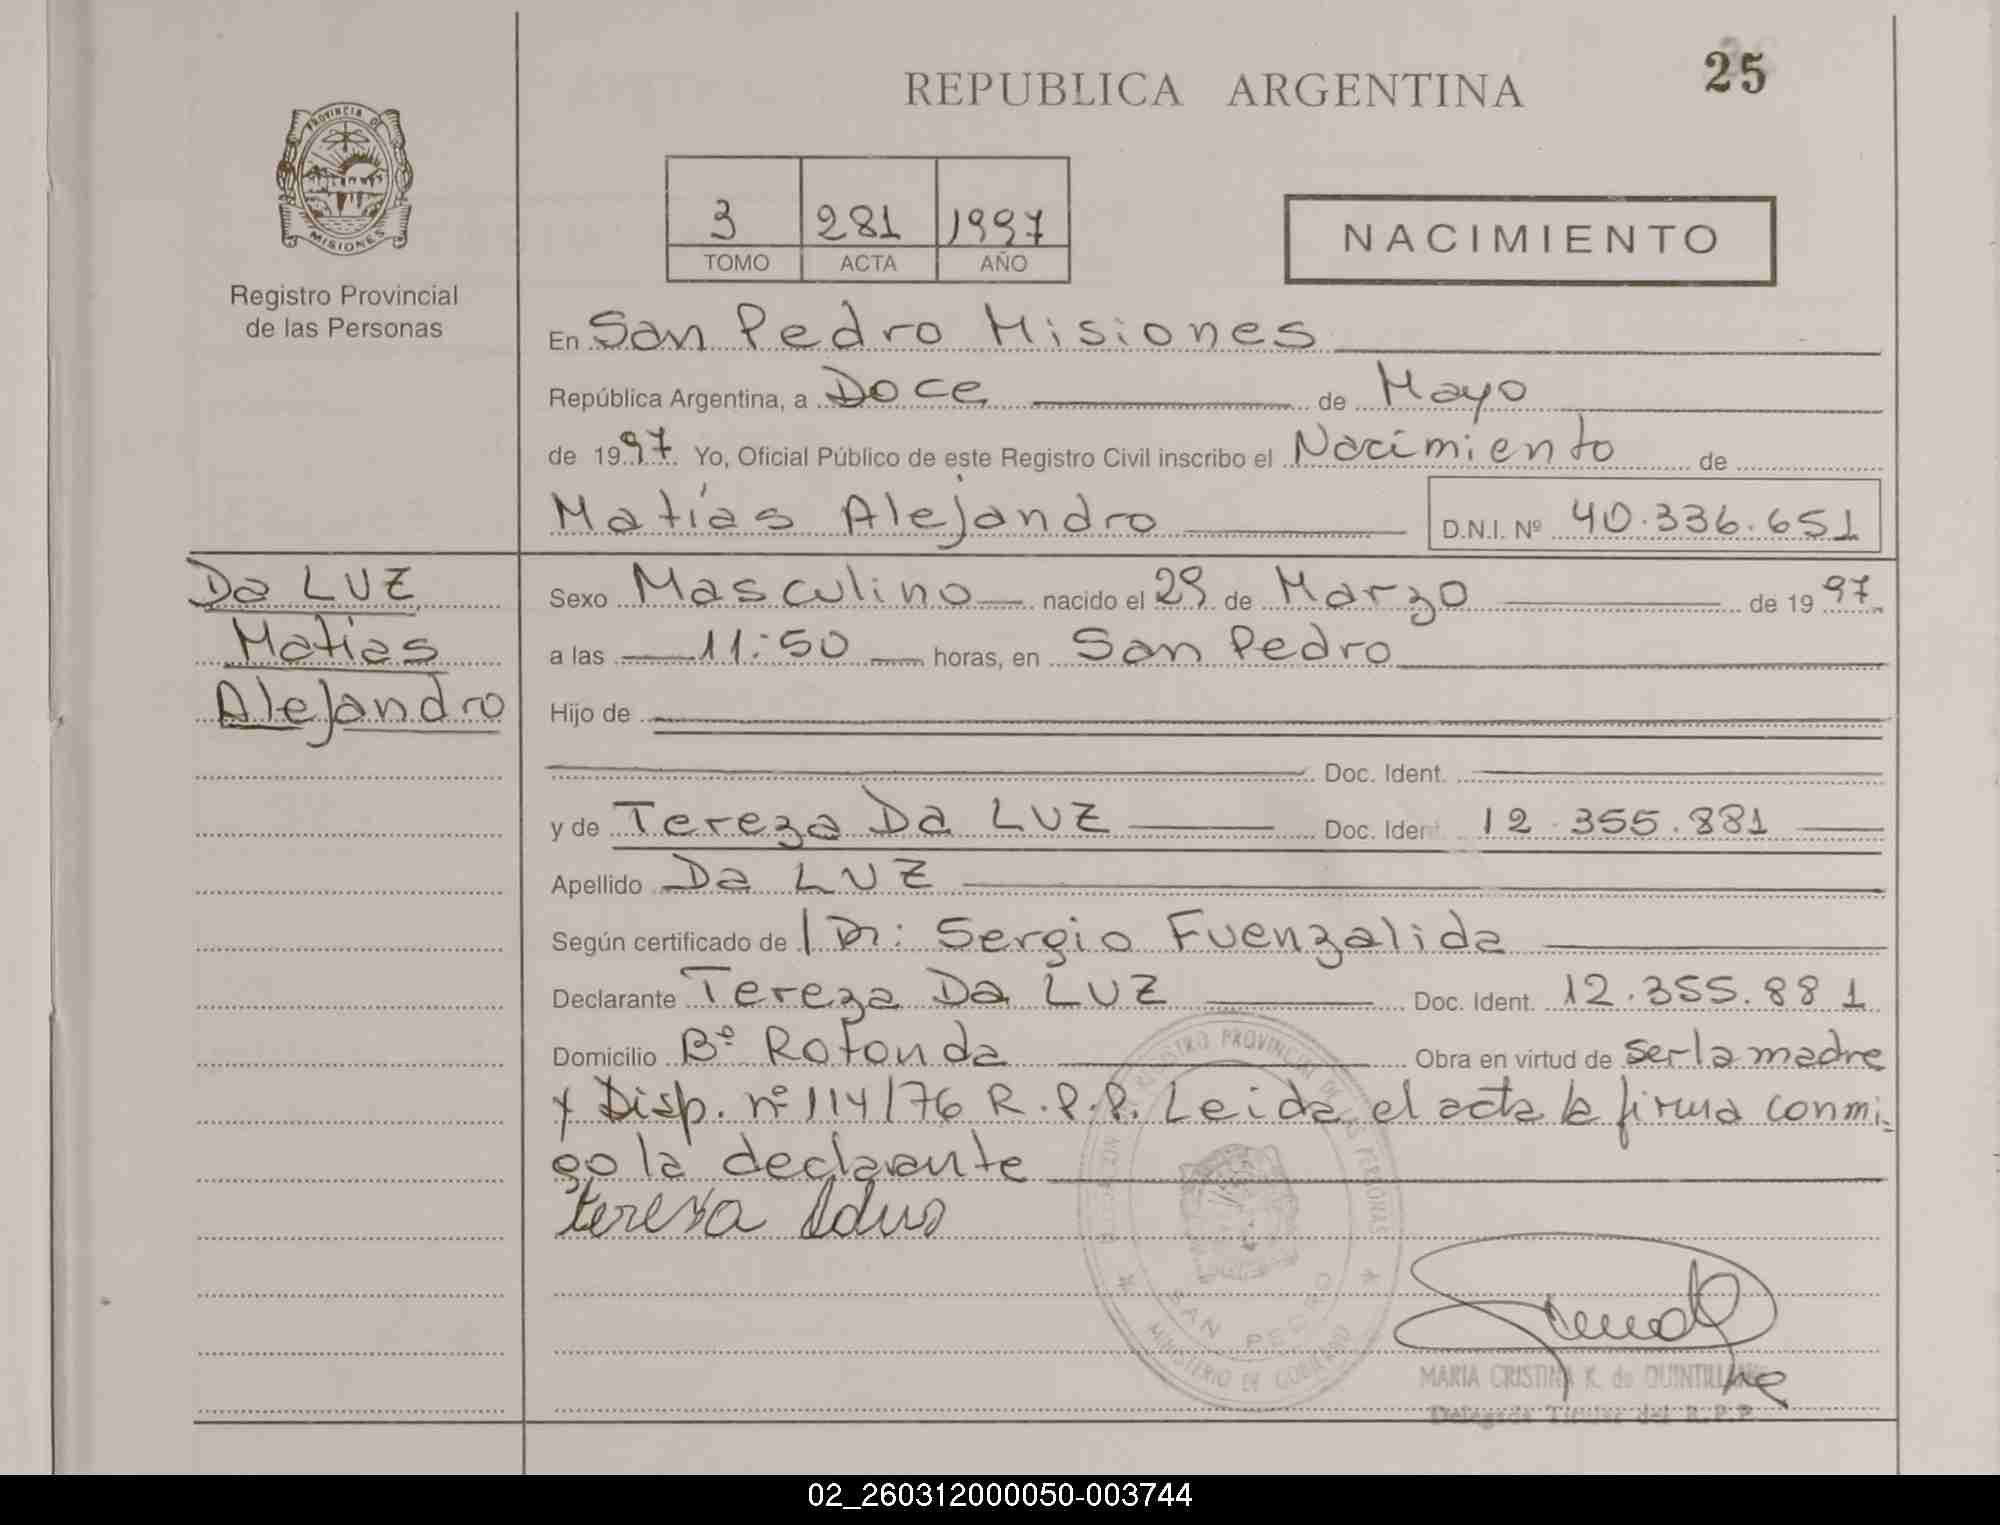 REPUBLICA ARGENTINA
25
PROVINCIA DE
MISIONES
Registro Provincial
de las Personas
3 281 1997
TOMO ACTA AÑO
NACIMIENTO
En San Pedro Misiones
República Argentina, a Doce de Mayo
de 1997. Yo, Oficial Público de este Registro Civil inscribo el Nacimiento de
Matías Alejandro D.N.I. Nº 40.336.651
Da LUZ
Matías
Alejandro
Sexo Masculino nacido el 29 de Marzo de 1997.
a las 11:50 horas, en San Pedro
Hijo de
Doc. Ident.
y de Tereza Da LUZ Doc. Ident. 12.355.881
Apellido Da LUZ
Según certificado de Dr: Sergio Fuenzalida
Declarante Tereza Da LUZ Doc. Ident. 12.355.881
Domicilio Bº Rotonda Obra en virtud de ser la madre
y Disp. nº 114/76 R.P.P. Leida el acta la firma conmi-
go la declarante
tereza
REGISTRO PROVINCIAL DE LAS PERSONAS
SAN PEDRO
MINISTERIO DE GOBIERNO
MARIA CRISTINA K. de
Delegada Titular del R.P.P.
02_260312000050-003744